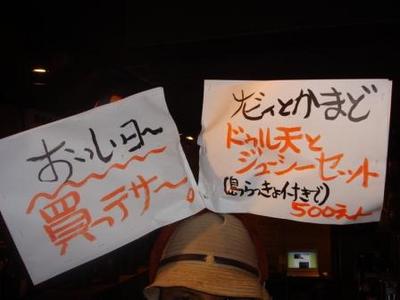 おいしいヨ〜
買ってサ〜。
ナビィとかまど
ドゥル天と
ジューシーセット
(島らっきょ付きで)
500えん